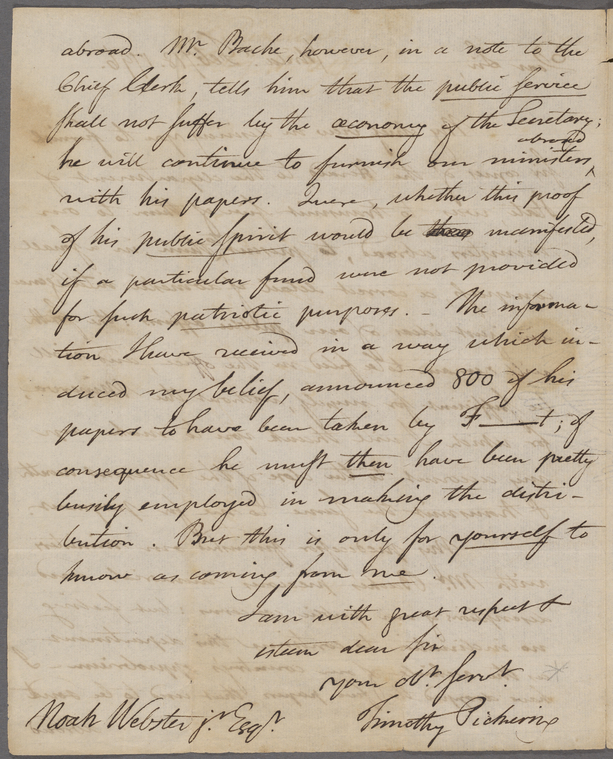 abroad. Mr. Bache, however, in a note to the
Chief Clerk, tells him that the public service
shall not suffer by the œconomy of the Secretary;
he will continue to furnish our ministers ^abroad
with his papers. Quere, whether this proof
of his public spirit would be manifested,
if a particular fund were not provided
for such patriotic purposes. – The informa-
tion I have received in a way which in-
duced my belief, announced 800 of his
papers to have been taken by F——t; of
consequence he must then have been pretty
busily employed in making the distri-
bution. But this is only for yourself to
know as coming from me
I am with great respect &
esteem dear sir
your obt. servt.
Noah Webster jr. Esqr. Timothy Pickering